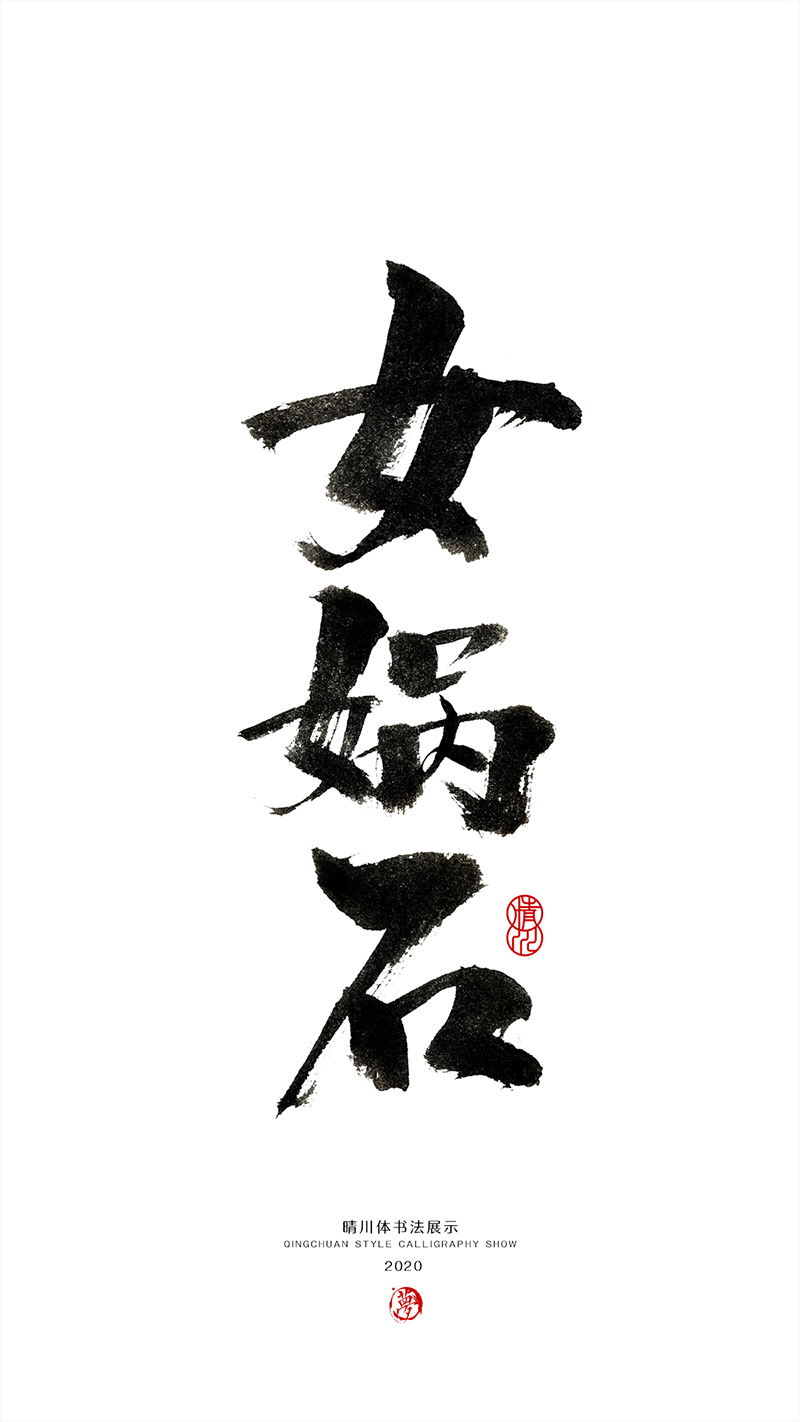 女娲石
晴川
晴川体书法展示
QINGCHUAN STYLE CALLIGRAPHY SHOW
2020
夢